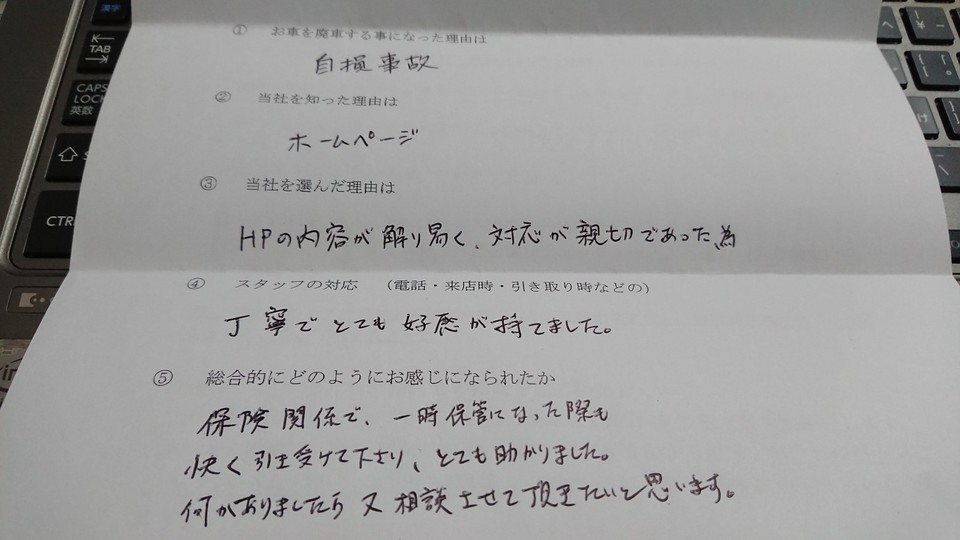 ① お車を廃車する事になった理由は
自損事故
② 当社を知った理由は
ホームページ
③ 当社を選んだ理由は
HPの内容が解り易く、対応が親切であった為
④ スタッフの対応 (電話・来店時・引き取り時などの)
丁寧でとても好感が持てました。
⑤ 総合的にどのようにお感じになられたか
保険関係で、一時保管になった際も
快く引き受けて下さり、とても助かりました。
何かありましたら又相談させて頂きたいと思います。
漢字
TAB
CAPS
LOCK
英数
CTR